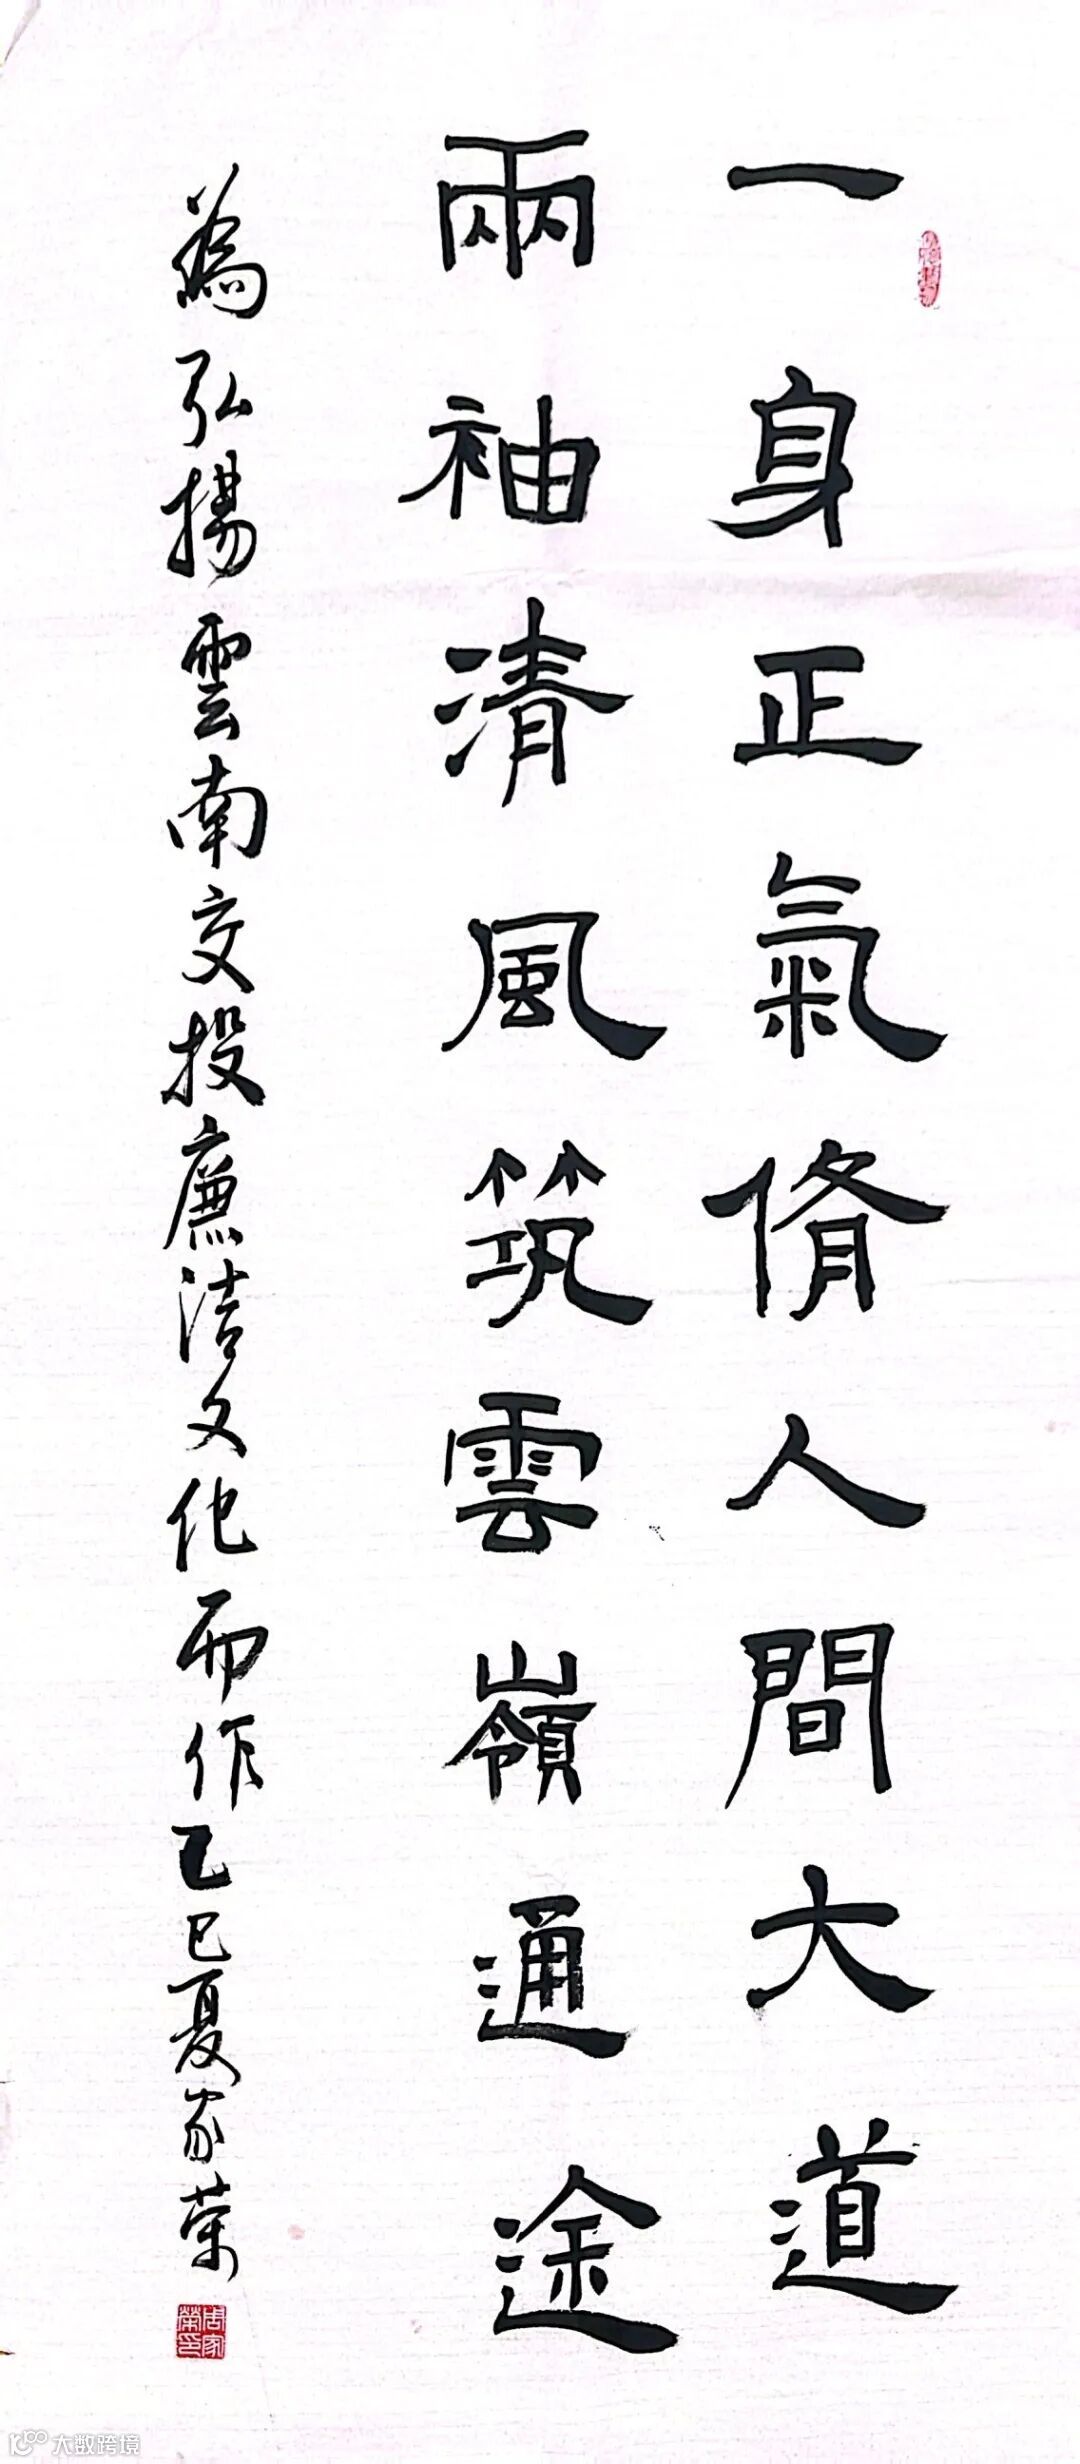 一身正氣脩人間大道
兩袖清風筑雲嶺通途
為弘揚雲南交投廉洁文化而作乙巳夏家榮
周家榮印
大数跨境